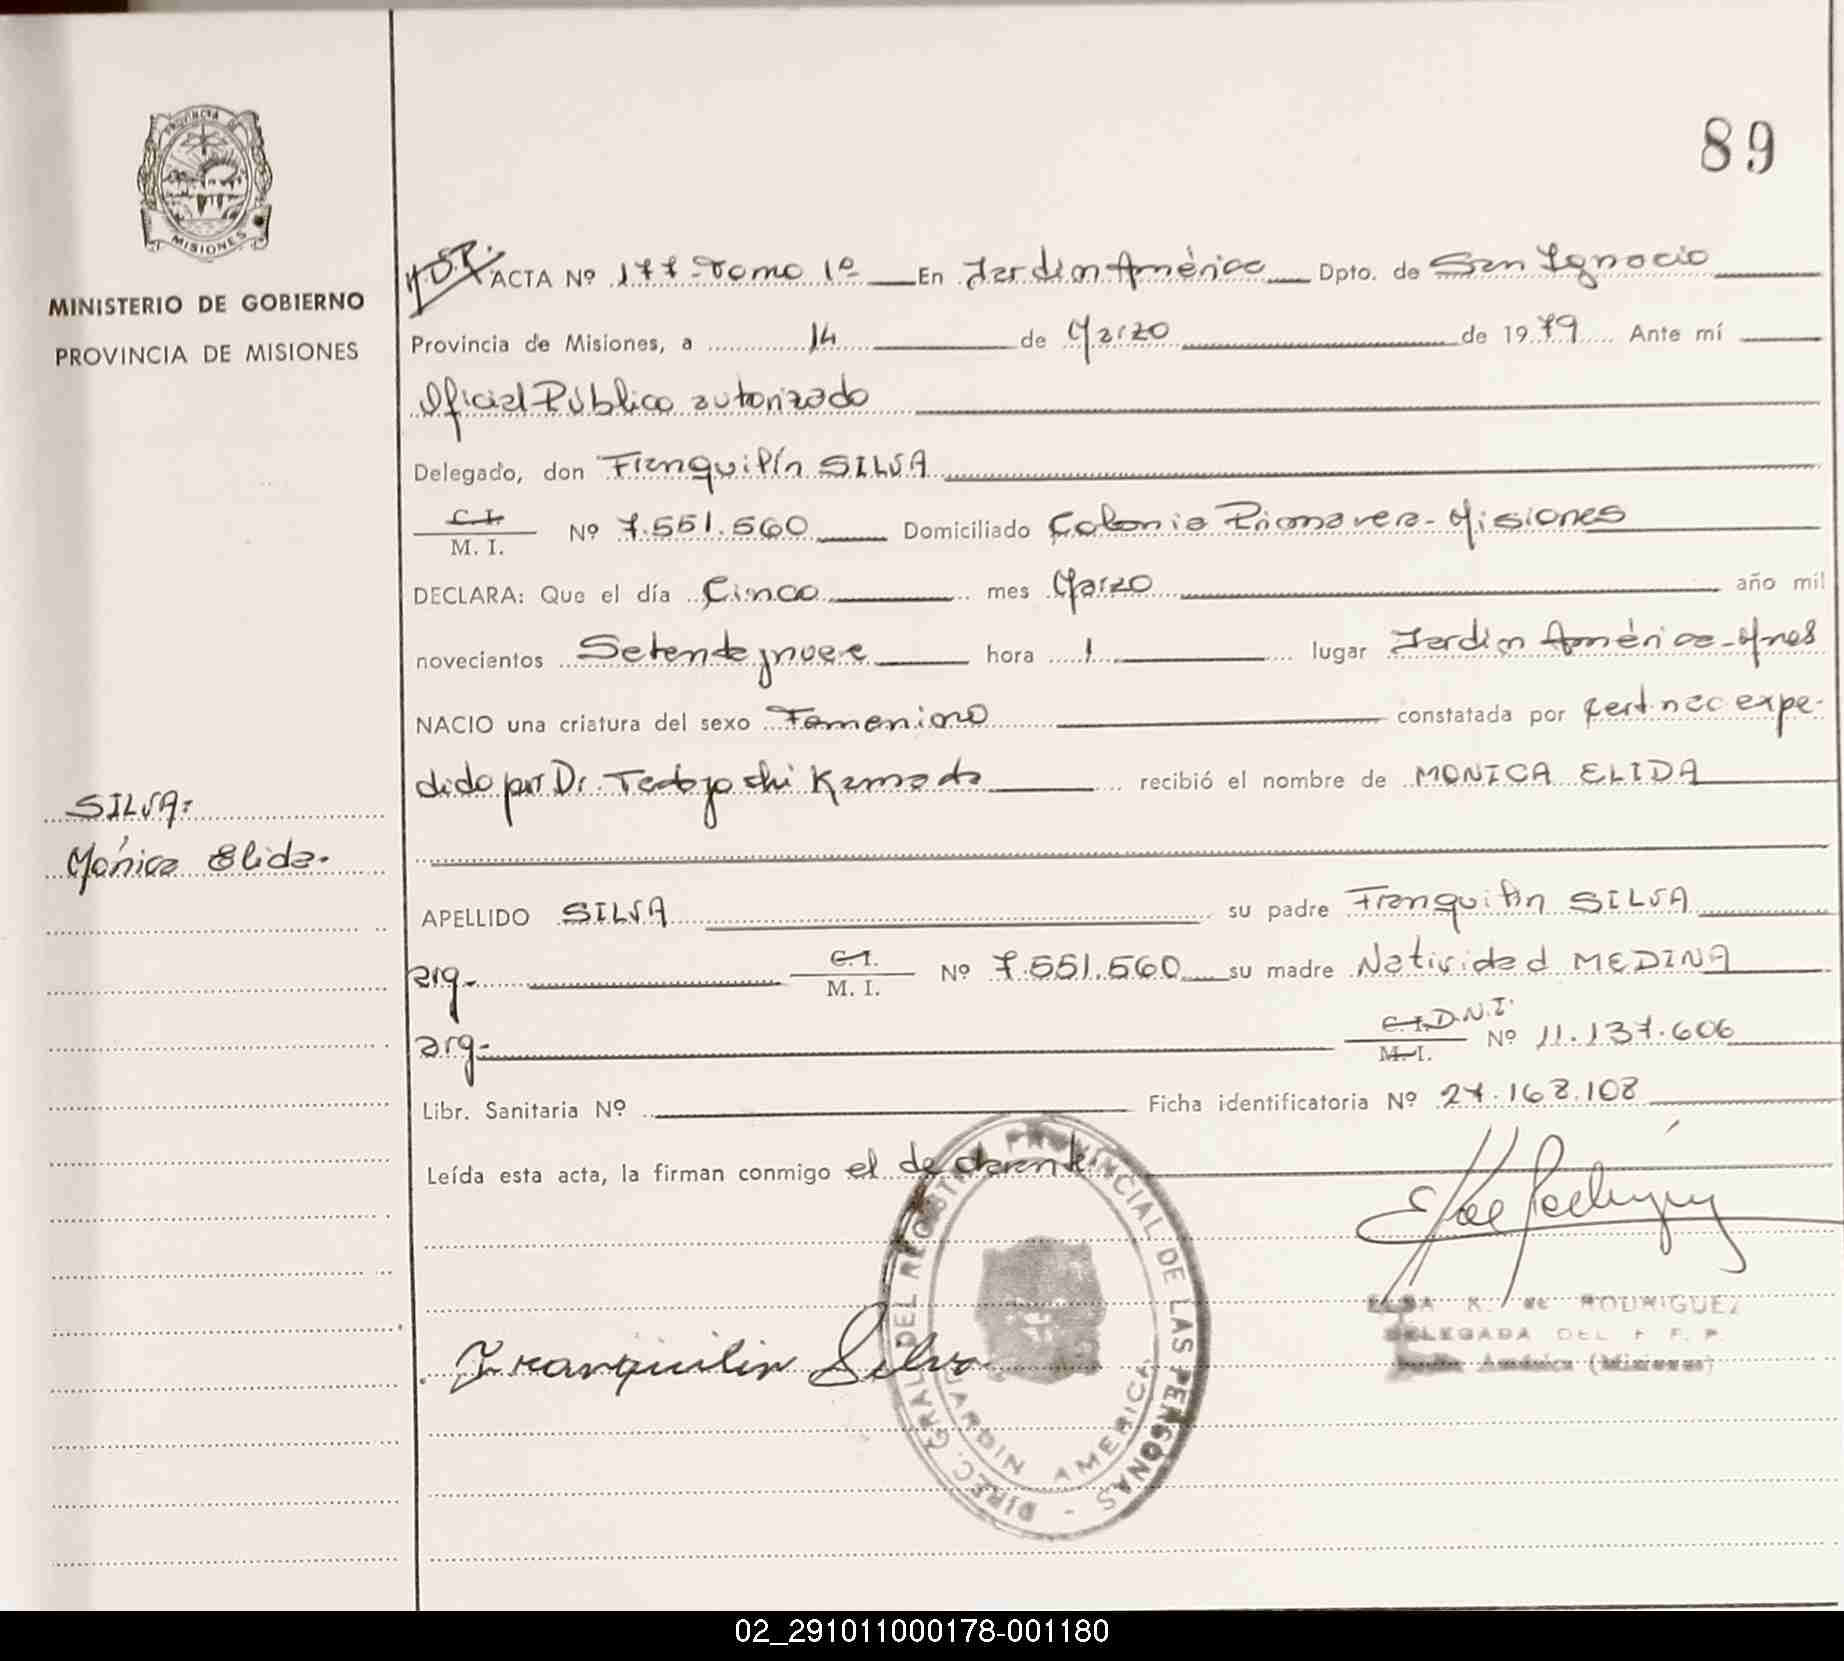 PROVINCIA DE
MISIONES
MINISTERIO DE GOBIERNO
PROVINCIA DE MISIONES
SILVA:
Mónica Elida.
89
ACTA Nº 177-Tomo 1º En Jardin América Dpto. de San Ignacio
Provincia de Misiones, a 14 de Marzo de 1979 Ante mí
Oficial Público autorizado
Delegado, don Franquilín SILVA
C. I.
M. I. Nº 7.551.560 Domiciliado Colonia Primavera-Misiones
DECLARA: Que el día Cinco mes Marzo año mil
novecientos Setenta y nueve hora 1 lugar Jardin América-Mnes
NACIO una criatura del sexo Femenino constatada por Cert. nac expe-
dido por Dr. Kamada recibió el nombre de MONICA ELIDA
APELLIDO SILVA su padre Franquilin SILVA
arg- C.I.
M. I. Nº 7.551.560 su madre Natividad MEDINA
arg- C.I. D.N.I.
M.I. Nº 11.137.606
Libr. Sanitaria Nº Ficha identificatoria Nº 27.168.108
Leída esta acta, la firman conmigo el declarante
Franquilin Silva
DIREC. GRAL DEL REGISTRO PROVINCIAL DE LAS PERSONAS -
JARDIN AMERICA
ELSA K. de RODRIGUEZ
DELEGADA DEL R. P. P.
Jardín América (Misiones)
02_291011000178-001180